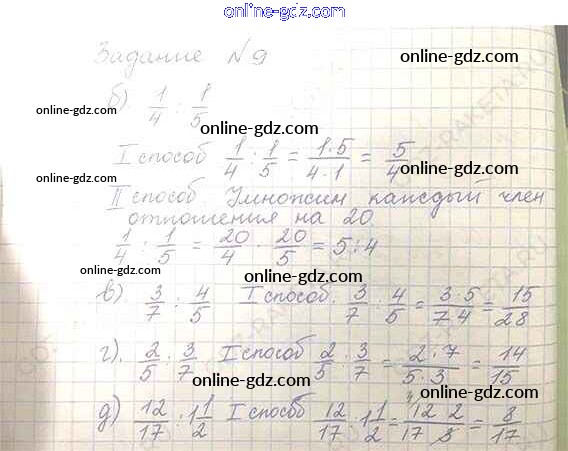 online-gdz.com
Задание N9
online-gdz.com
б) 1/4 : 1/5
online-gdz.com
online-gdz.com
I способ 1/4 : 1/5 = 1·5/4·1 = 5/4
online-gdz.com
II способ. Умножим каждый член
отношения на 20.
online-gdz.com
1/4 : 1/5 = 20/4 : 20/5 = 5:4
online-gdz.com
online-gdz.com
в) 3/7 : 4/5 I способ. 3/7 : 4/5 = 3·5/7·4 = 15/28
online-gdz.com
online-gdz.com
г). 2/5 : 3/7 I способ 2/5 : 3/7 = 2·7/5·3 = 14/15
online-gdz.com
online-gdz.com
д) 12/17 : 1 1/2 I способ 12/17 : 1 1/2 = 12 2/17 3 = 8/17
online-gdz.com